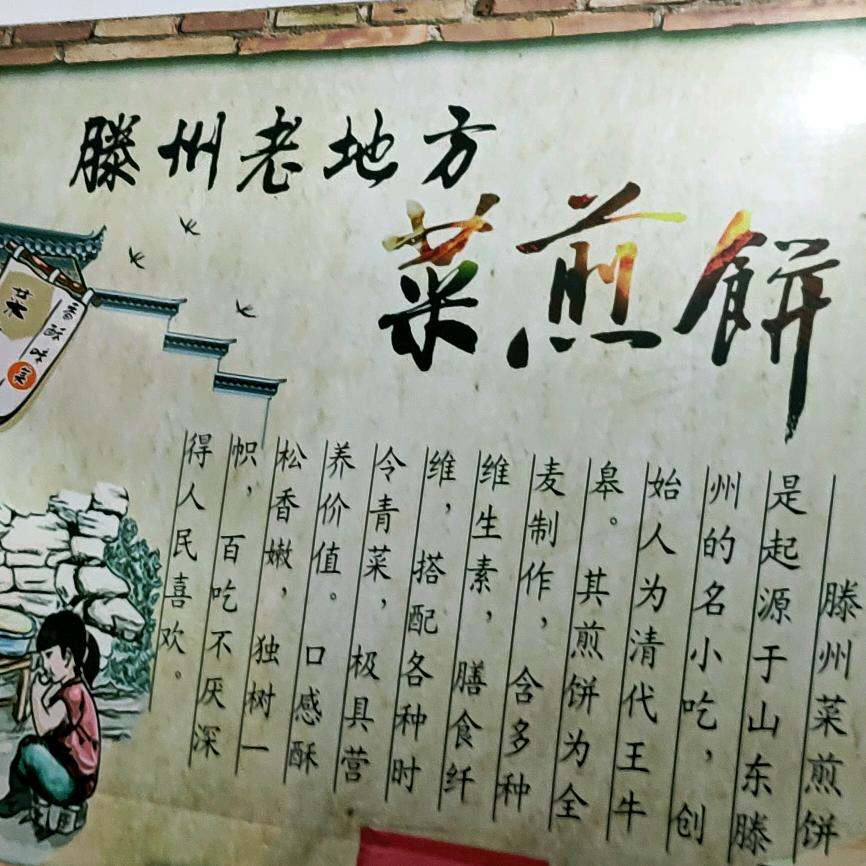 滕州老地方
菜煎饼
菜
香酥味美
滕州菜煎饼
是起源于山东滕
州的名小吃，创
始人为清代王牛
皋。其煎饼为全
麦制作，含多种
维生素，膳食纤
维，搭配各种时
令青菜，极具营
养价值。口感酥
松香嫩，独树一
帜，百吃不厌深
得人民喜欢。